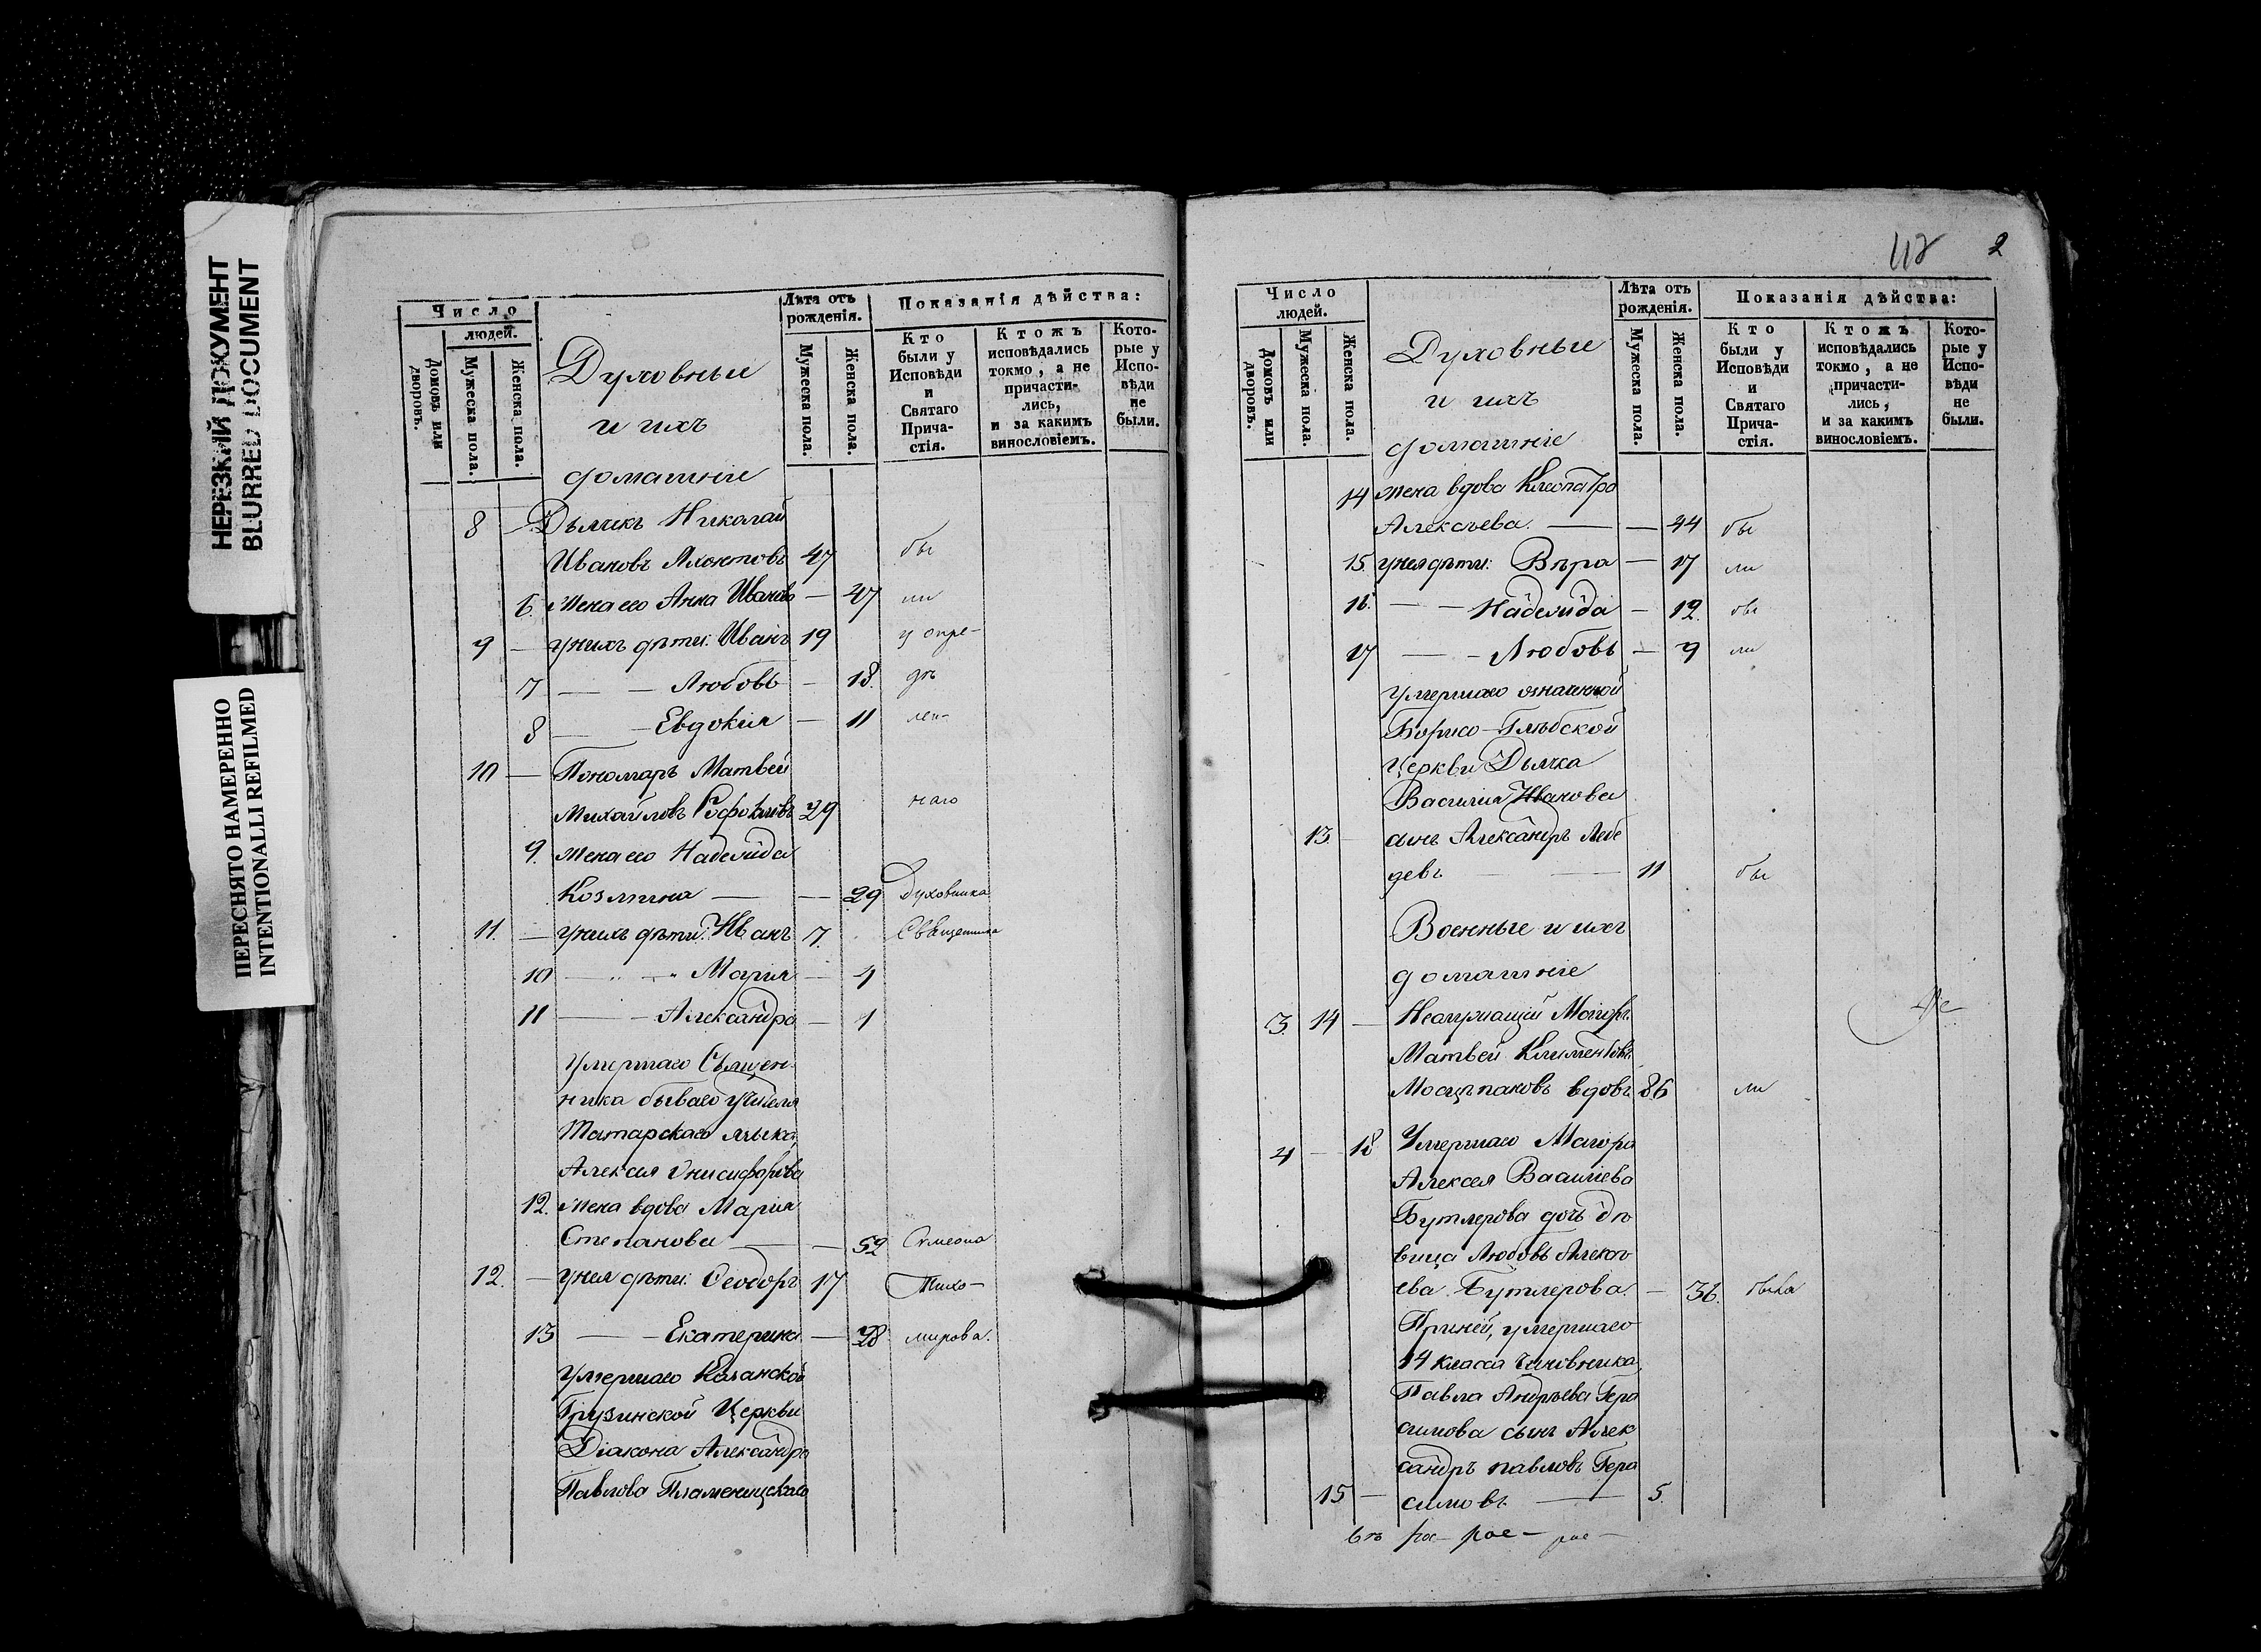 НЕРЕЗКИЙ ДОКУМЕНТ
BLURRED DOCUMENT
ПЕРЕСНЯТО НАМЕРЕННО
INTENTIONALLI REFILMED
Число
людей.
Домовъ или дворовъ.
Мужеска пола.
Женска пола.
Духовныи
и ихъ
домашніе
Лѣта отъ рожденія.
Мужеска пола.
Женска пола.
Показанія дѣйства:
Кто были у Исповѣди и Святаго Прича-стія.
Ктожъ исповѣдались токмо, а не причасти-лись, и за какимъ винословіемъ.
Кото-рые у Испо-вѣди не были.
8 — Дьячкъ Николай
Ивановъ 47 бы
6. Жена его Анна Иванов — 47 ли
9 — у нихъ дѣти: Иванъ 19 у опре-
7 — — Любовь — 18. дѣ
8 — — Евдокия — 11 лен-
10 — Пономарь Матвей
Михайловъ 29 наго
9. Жена его Надежда
Козмина — — 29 духовника
11. — у нихъ дѣти: Иванъ 7. Священника
10 — „ — „ Мария — 4
11 — — Александра — 1
умершаго Священ-
ника бываго учителя
Татарскаго языка,
Алексея Онисифорова
12. жена вдова Мария
Степанова — — 52 Симеона
12. — у нея дѣти: Феодоръ 17 Тихо-
13 — — Екатерина — 28 мирова.
умершаго Казанской
Грузинской Церкви
Діакона Александра
Павлова
112 2
Число
людей.
Домовъ или дворовъ.
Мужеска пола.
Женска пола.
Духовные
и ихъ
домашніе
Лѣта отъ рожденія.
Мужеска пола.
Женска пола.
Показанія дѣйства:
Кто были у Исповѣди и Святаго Прича-стія.
Ктожъ исповѣдались токмо, а не причасти-лись, и за какимъ винословіемъ.
Кото-рые у Испо-вѣди не были.
14 жена вдова Клеопатра
Алексѣева. — — 44 бы
15. у нея дѣти: Вѣра — 17 ли
16. — — Надежда — 12. бы
17 — — Любовь — 9 ли
умершаго означенной
Борисо-Глѣбской
Церкви Дьячка
Василия Иванова
13. — сынъ Александръ Лебе
девъ — — 11 бы
Военные и ихъ
домашніе
3. 14 — Маіоръ
Матвей
вдовъ 86 ли
4 — 18 Умершаго Маіора
Алексея Василіева
Бутлерова дочь дѣ
вица Любовь Алексѣ
ева Бутлерова. — 36. была
При ней, умершаго
14 класса Чиновника,
Павла Андрѣева Гера
симова сынъ Алек
сандръ Павловъ Гера
15 — симовъ — 5.